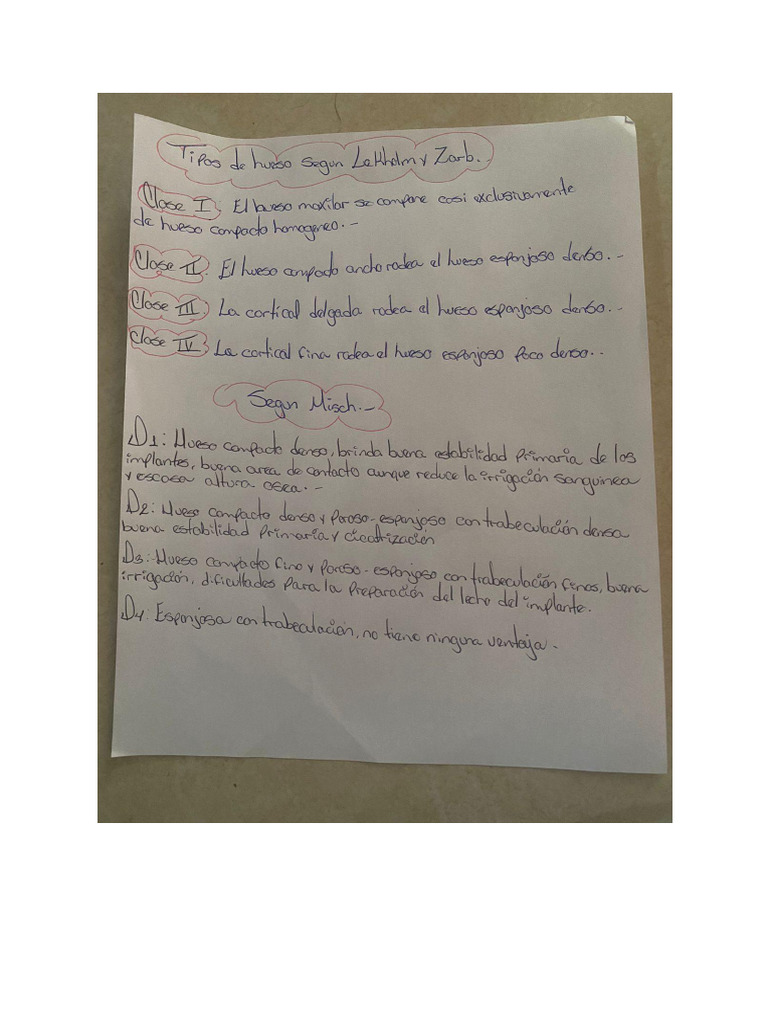 Tipos de hueso segun Lekholm y Zarb.-
Clase I: El hueso maxilar se compone casi exclusivamente
de hueso compacto homogeneo.-
Clase II: El hueso compacto ancho rodea el hueso esponjoso denso.-
Clase III: La cortical delgada rodea el hueso esponjoso denso.-
Clase IV: La cortical fina rodea el hueso esponjoso poco denso..
Segun Misch.-
D1: Hueso compacto denso, brinda buena estabilidad primaria de los
implantes, buena area de contacto aunque reduce la irrigación sanguinea
y escasa altura osea.-
D2: Hueso compacto denso y poroso-esponjoso con trabeculación densa
buena estabilidad primaria y cicatrización
D3: Hueso compacto fino y poroso-esponjoso con trabeculación finas, buena
irrigación, dificultades para la preparación del lecho del implante.
D4: Esponjosa con trabeculación, no tiene ninguna ventaja.